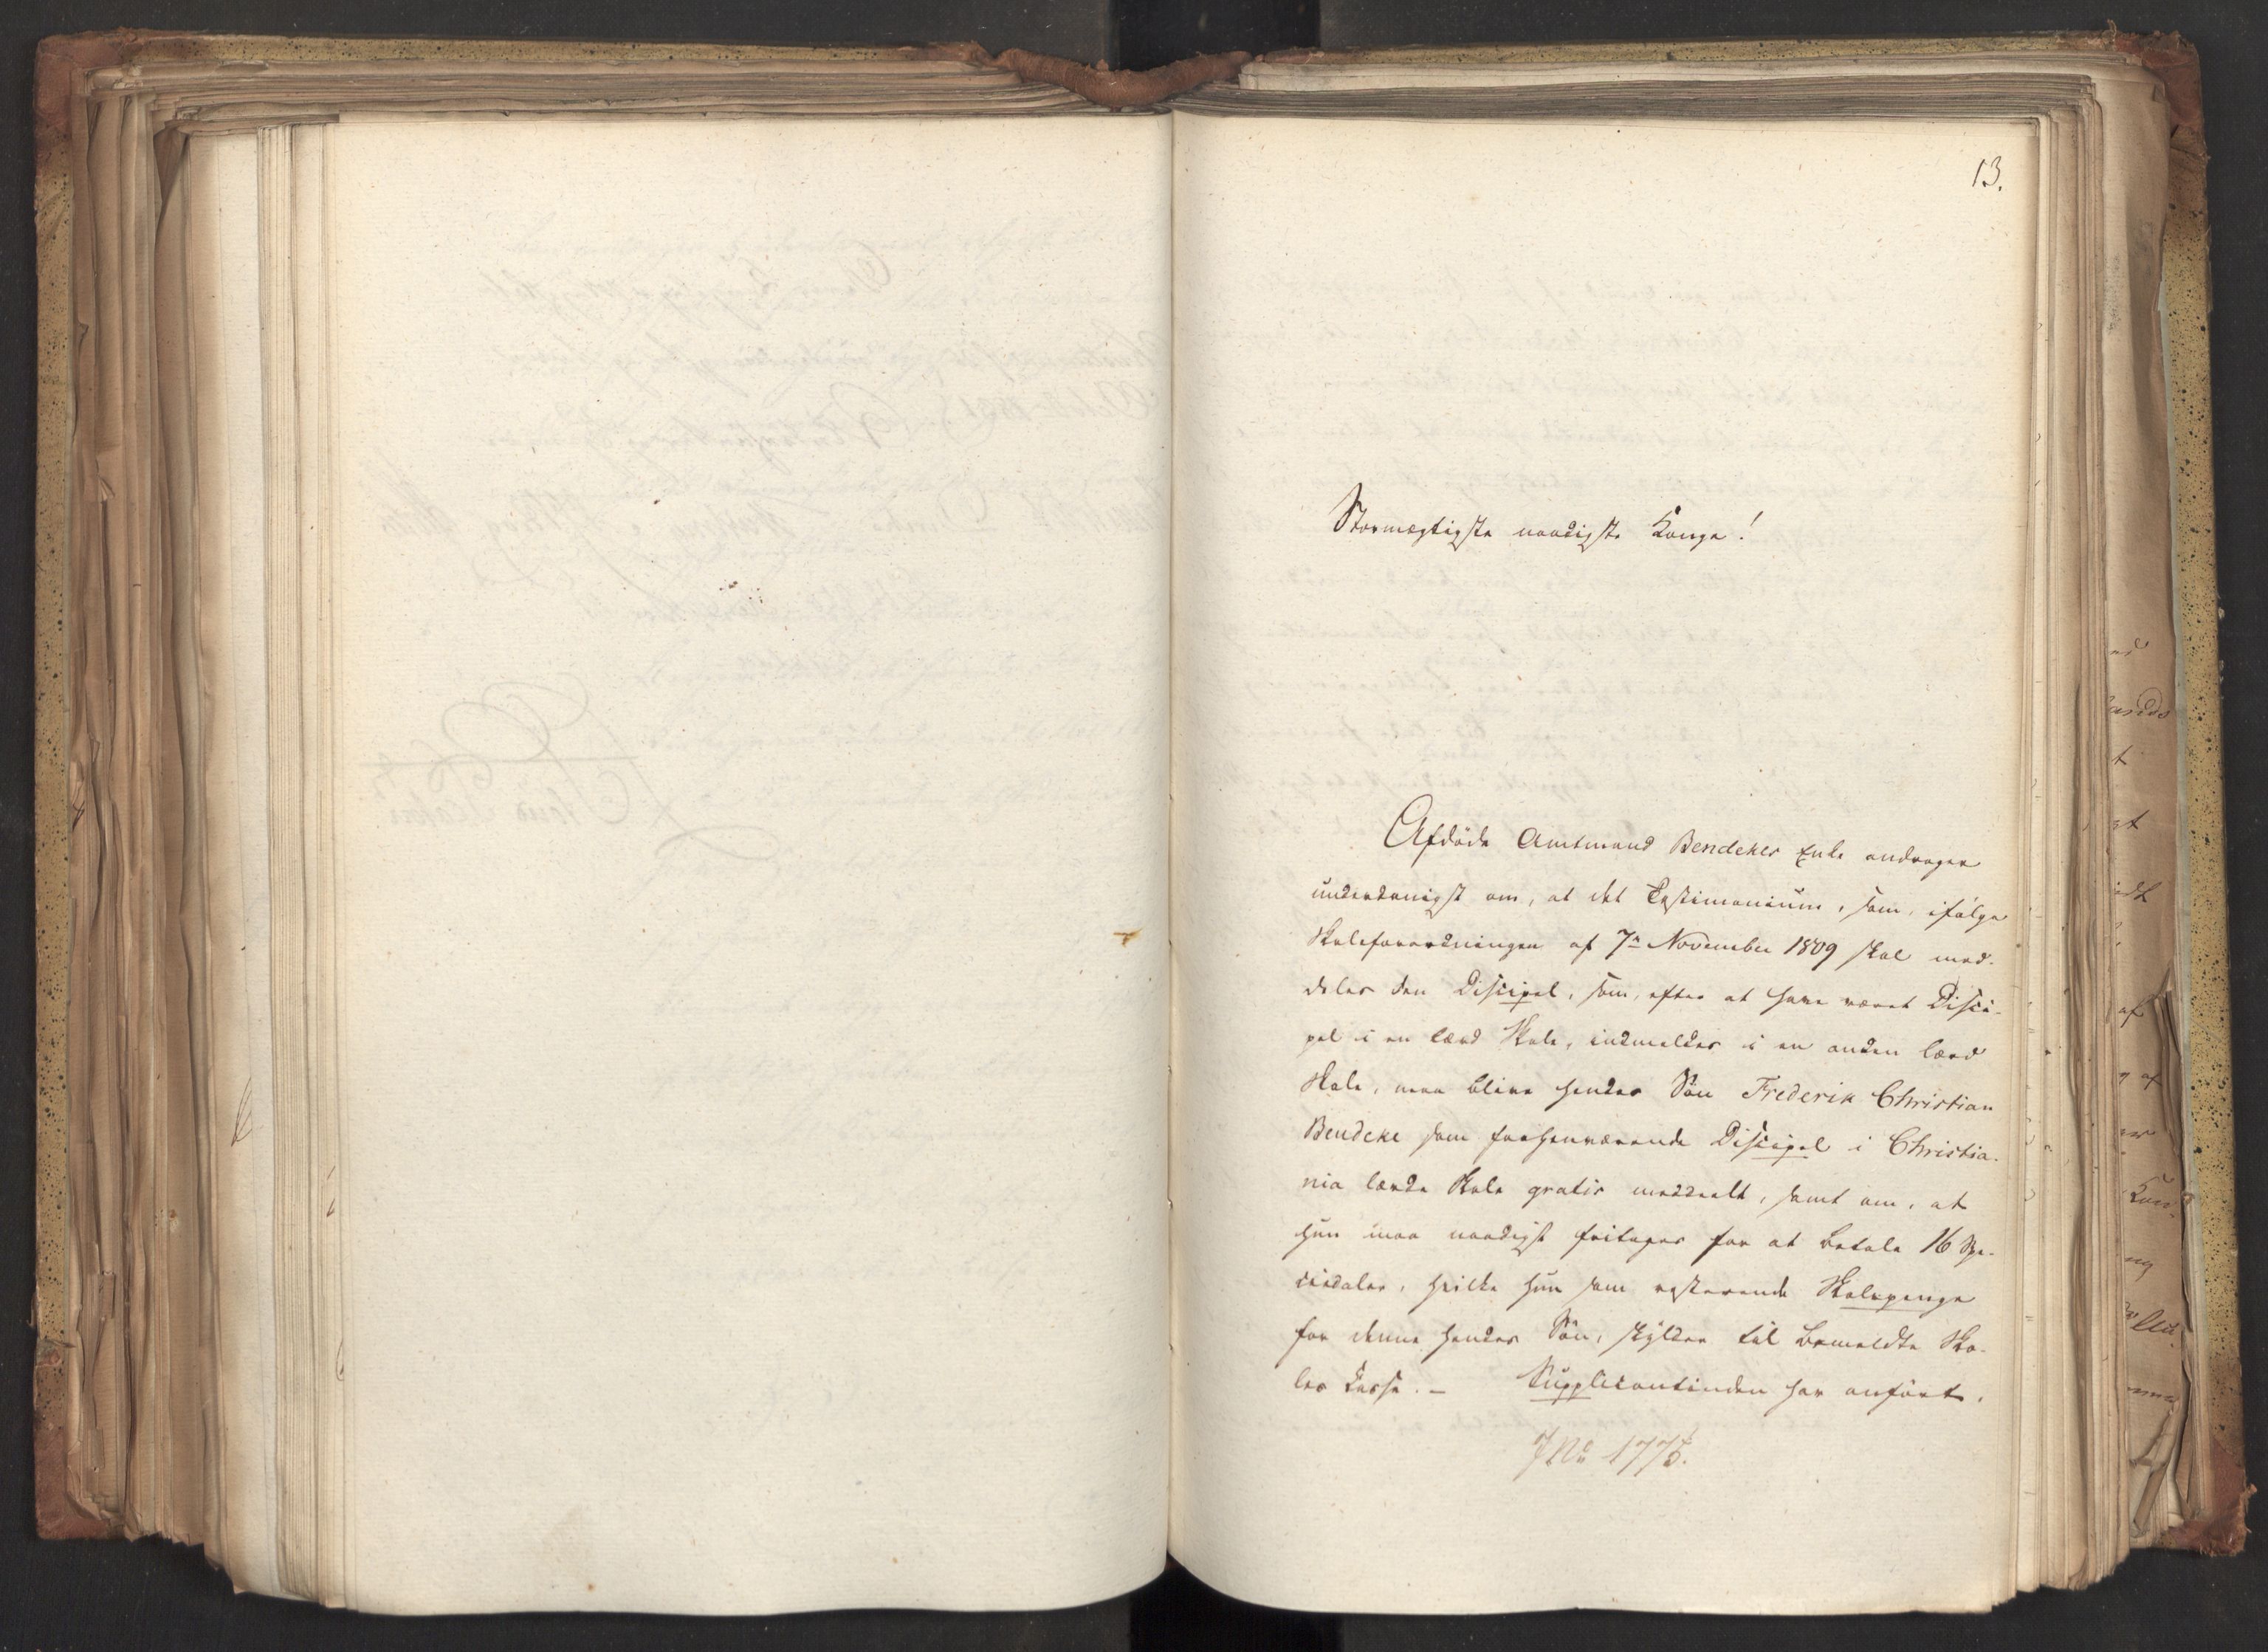 13.
Stormægtigste naadigste Konge!
Afdöde Amtmand Bendekes Enke andrager
underdanigst om, at det Testimonium, som, ifölge
Skoleforordningen af 7de November 1809 skal med-
deles den Discipel, som, efter at have været Disci-
pel i en lærd Skole, indmeldes i en anden lærd
Skole, maa blive hendes Sön Frederik Christian
Bendeke som forhenværende Discipel i Christia-
nia lærde Skole gratis meddeelt, samt om, at
hun maa naadigst fritages for at betale 16 Spe-
ciedaler, hvilke hun som resterende Skolepenge
for denne hendes Sön, skylder til bemeldte Sko-
les Casse. — Supplicantinden har anfört,